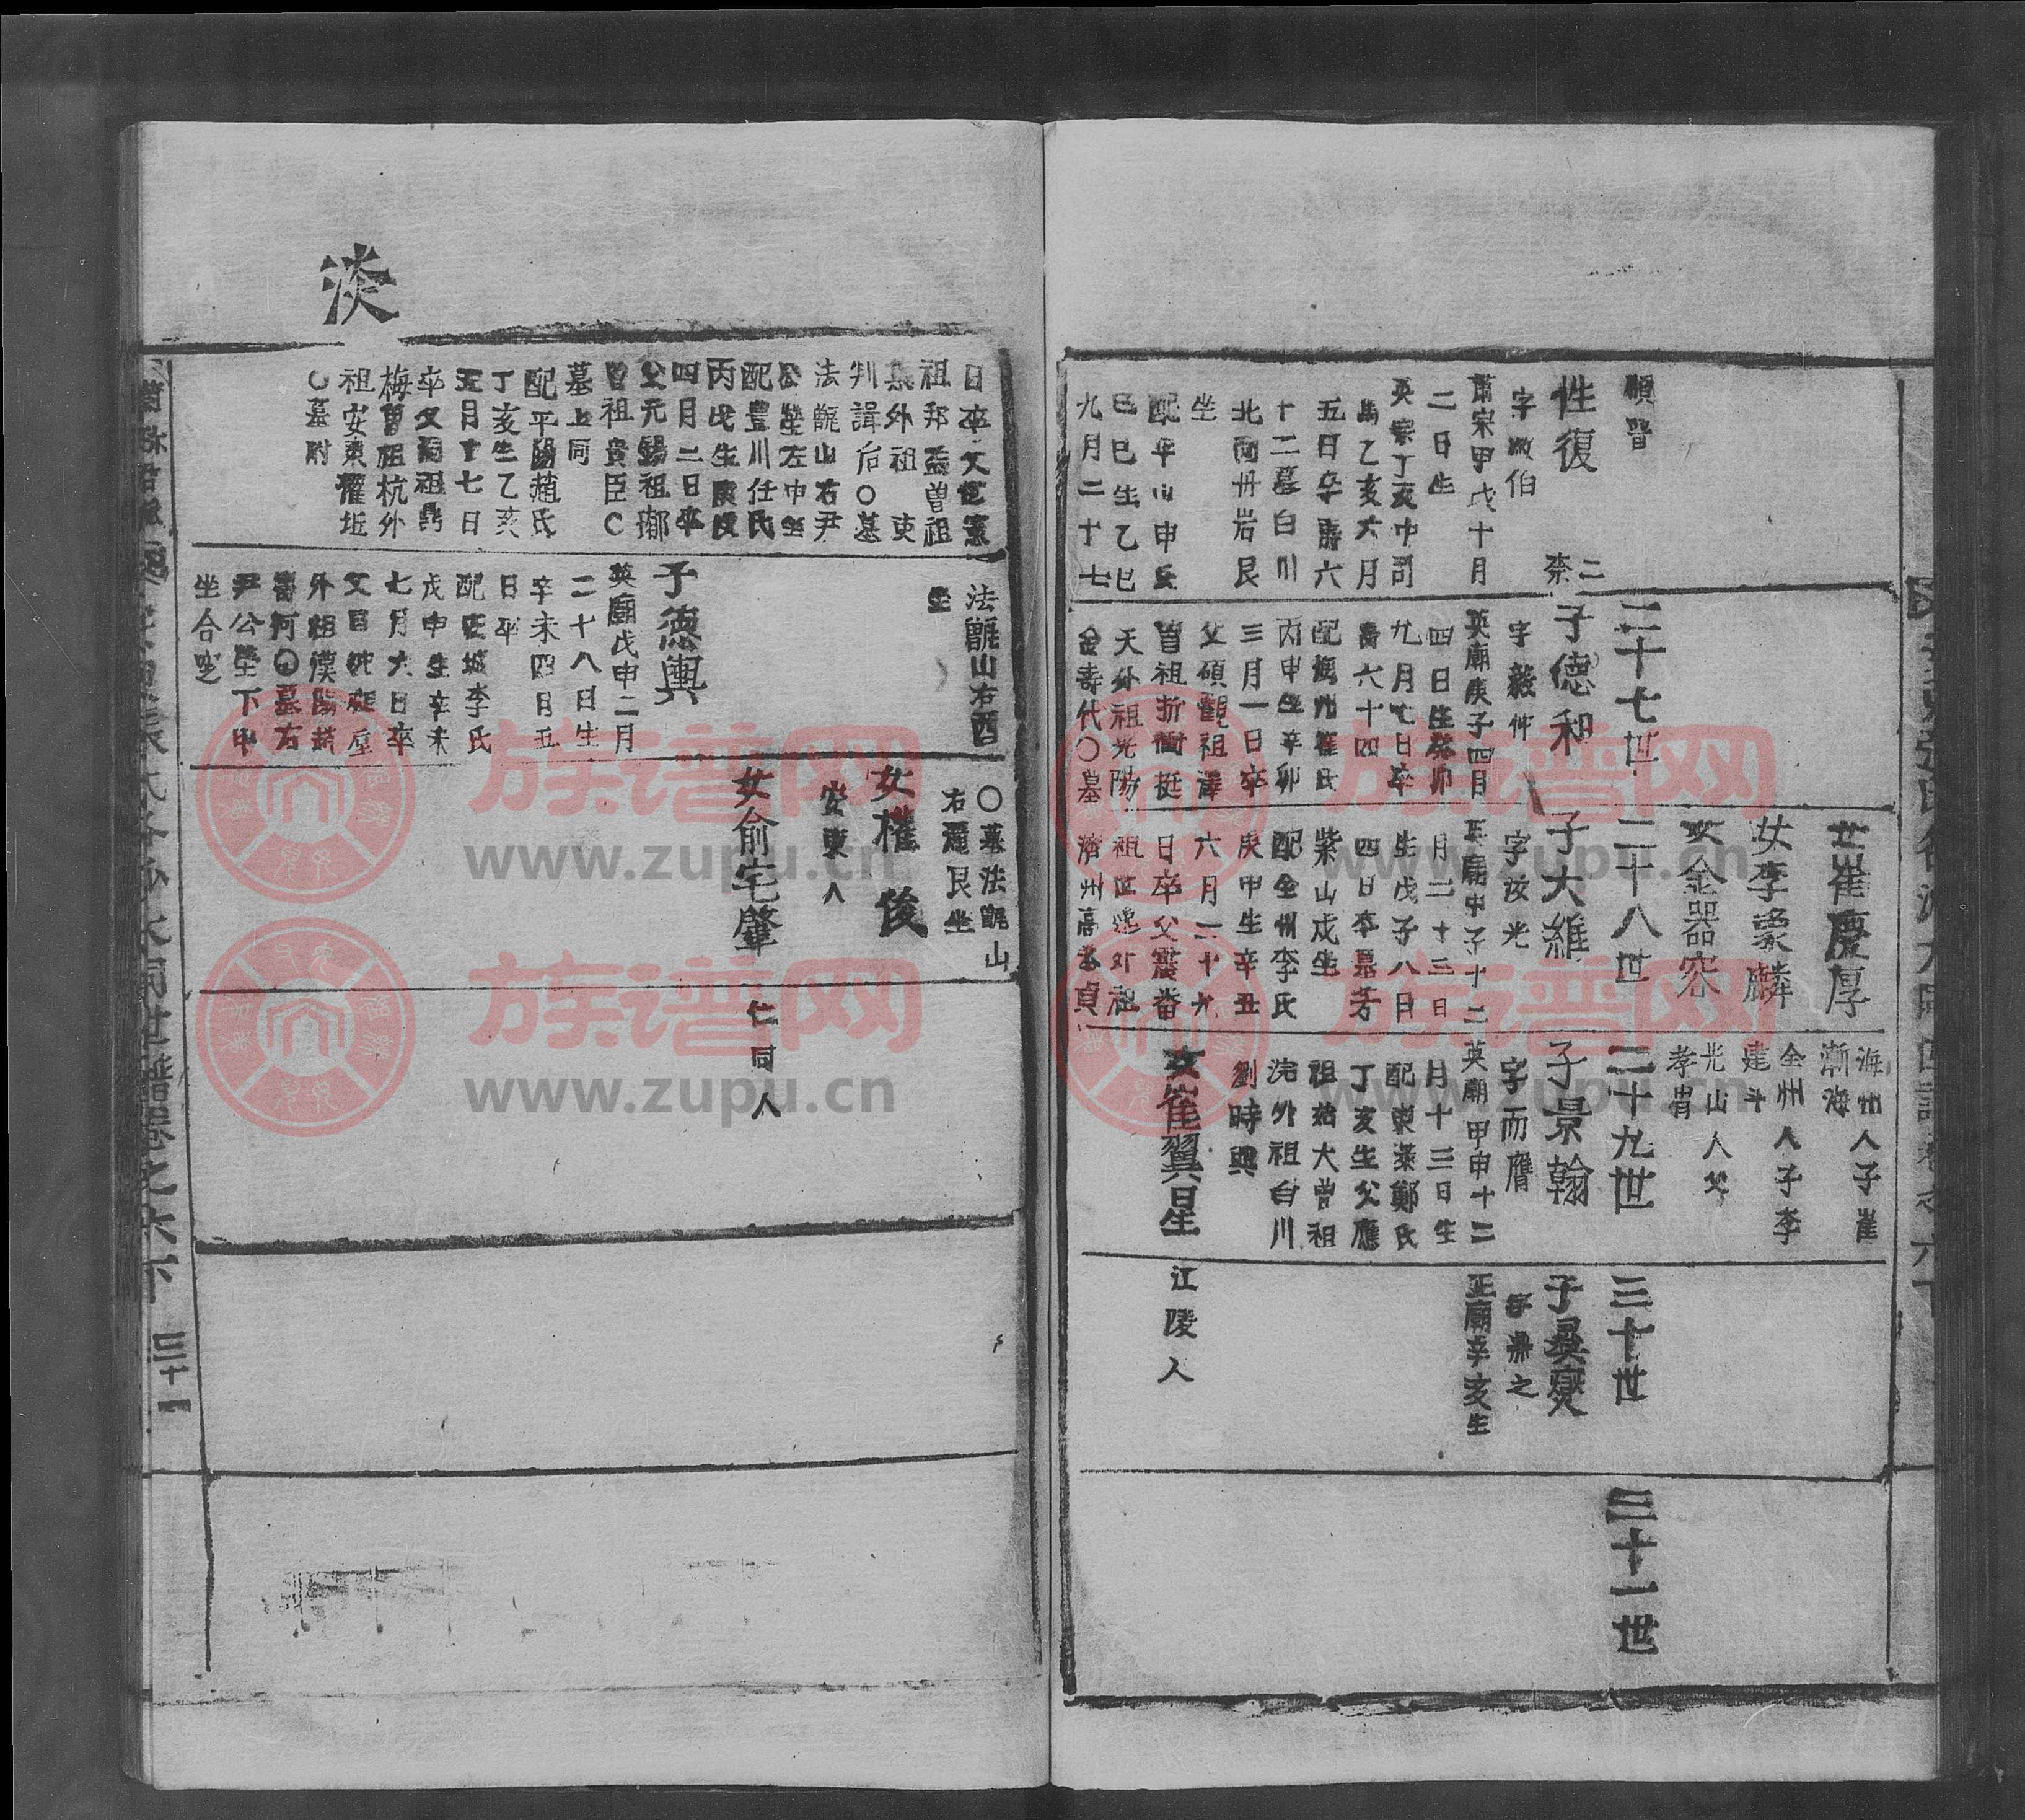 順哲
性復
二
字汝伯
肅宗甲戌十月
二日生
英宗丁亥中司
馬乙亥六月
五日卒壽六
十二墓白川
北面丹岩艮
坐
配平山申氏
己巳生乙巳
九月二十七
二十七世
子德和
字毅仲
英廟庚子四月
四日生癸卯
九月七日卒
壽六十四
配海州崔氏
丙申生辛卯
三月一日卒
父碩觀祖
曾祖折衝挺
天外祖光陽
金壽代〇墓
女崔慶厚
女李象麟
女金器容
二十八世
子大維
字汝光
英廟甲子十二
月二十三日
生戊子八日
四日卒墓芳
紫山戌坐
配全州李氏
庚申生辛丑
六月二十九
日卒父震蕃
祖世逸外祖
濟州高 貞
海州人子崔
漸海
全州人子李
建斗
光山人父
孝胄
二十九世
子景翰
字而膺
英廟甲申十二
月十三日生
配東萊鄭氏
丁亥生父應
祖 大曾祖
浣外祖白川
劉時興
女崔翼星
三十世
子 燮
字鼎之
正廟辛亥生
江陵人
三十一世
日卒父世憲
祖邦 曾祖
外祖 吏
判諱后〇墓
法 山右尹
公塋左中坐
配豊川任氏
丙戌生庚
四月二日卒
父元錫祖
曾祖貴臣〇
墓上同
配平陽趙氏
丁亥生乙亥
五月十七日
卒父 祖
梅曾祖杭外
祖安東權
〇墓附
法 山右酉
坐
子德輿
英廟戊申二月
二十八日生
辛未四日五
日卒
配 城李氏
戊申生辛未
七月六日卒
父 祖
外祖漢陽趙
壽河〇墓右
尹公塋下甲
坐合
〇墓法 山
右麓艮坐
女權俊
安東人
女俞宅肇
仁同人
淡
三十一
族谱网
www.zupu.cn
族谱网
www.zupu.cn
族谱网
www.zupu.cn
族谱网
www.zupu.cn